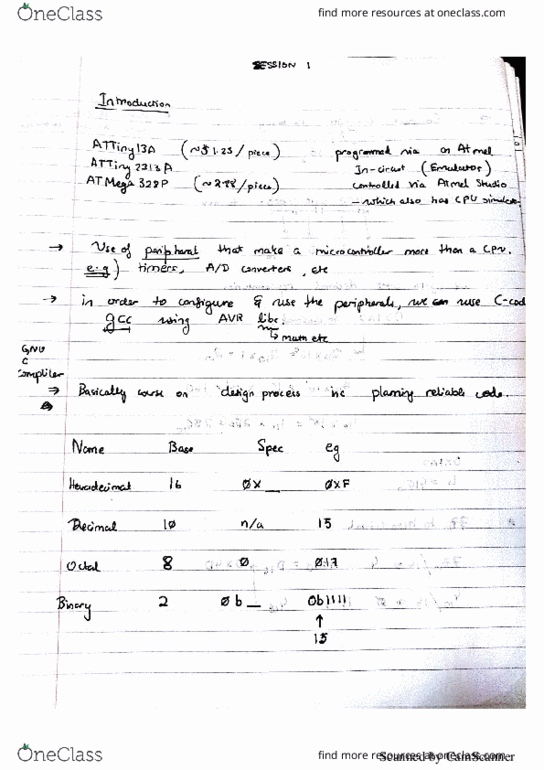 OneClass
find more resources at oneclass.com
SESSION 1
Introduction
ATTiny13A (~$1.23/piece) programmed via an Atmel
ATTiny2313A In-circuit (Emulator)
ATMega 328P (~2.88/piece) controlled via Atmel Studio
- which also has CPU simulator
→ Use of peripheral that make a microcontroller more than a CPU.
e.g) timers, A/D converters, etc
→ in order to configure & use the peripherals, we can use C-cod
gcc using AVR libc.
↳ math etc
GNU
C
Compiler
⇒ Basically course on design process inc planning reliable code.
Name Base Spec eg
Hexadecimal 16 0x__ 0xF
Decimal 10 n/a 15
Octal 8 0 017
Binary 2 0b__ 0b1111
↑
15
OneClass
find more resources at oneclass.com
Scanned by CamScanner